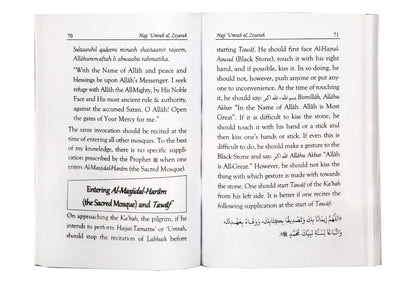 70 Hajj 'Umrah & Ziyarah
Sultaanihil qadeemi minash shaitaanir rajeem,
Allâhumm-aftah li abwaaba rahmatika.
"With the Name of Allâh and peace and
blessings be upon Allâh's Messenger. I seek
refuge with Allâh the All-Mighty, by His Noble
Face and His most ancient rule & authority,
against the accursed Satan. O Allâh! Open
the gates of Your Mercy for me."
The same invocation should be recited at the
time of entering all other mosques. To the best
of my knowledge, there is no specific suppli-
cation prescribed by the Prophet ﷺ when one
enters Al-Masjidal-Harâm (the Sacred Mosque).
Entering Al-Masjidal-Harâm
(the Sacred Mosque) and Tawâf
On approaching the Ka'bah, the pilgrim, if he
intends to perform Hajjut Tamattu' or 'Umrah,
should stop the recitation of Labbaik before
Hajj 'Umrah & Ziyarah 71
starting Tawâf. He should first face Al-Hajrul-
Aswad (Black Stone), touch it with his right
hand, and if possible, kiss it. In so doing, he
should not, however, push anyone or put any-
one to inconvenience. At the time of touching
it, he should say: بسم الله، الله أكبر Bismillâh, Allâhu
Akbar "In the Name of Allâh. Allâh is Most
Great". If it is difficult to kiss the stone, he
should touch it with his hand or a stick and
then kiss one's hands or stick. If even this is
difficult, he should make a gesture to the
Black Stone and say: الله أكبر Allâhu Akbar "Allâh
is All-Great." However, he should not kiss the
thing with which gesture is made with towards
the stone. One should start Tawaf of the Ka'bah
from his left side. It is better if one recites the
following supplication at the start of Tawaf:
«اللَّهُمَّ إِيمَانًا بِكَ وَتَصْدِيقًا بِكِتَابِكَ، وَوَفَاءً بِعَهْدِكَ،
وَاتِّبَاعًا لِسُنَّةِ نَبِيِّكَ مُحَمَّدٍ ﷺ».